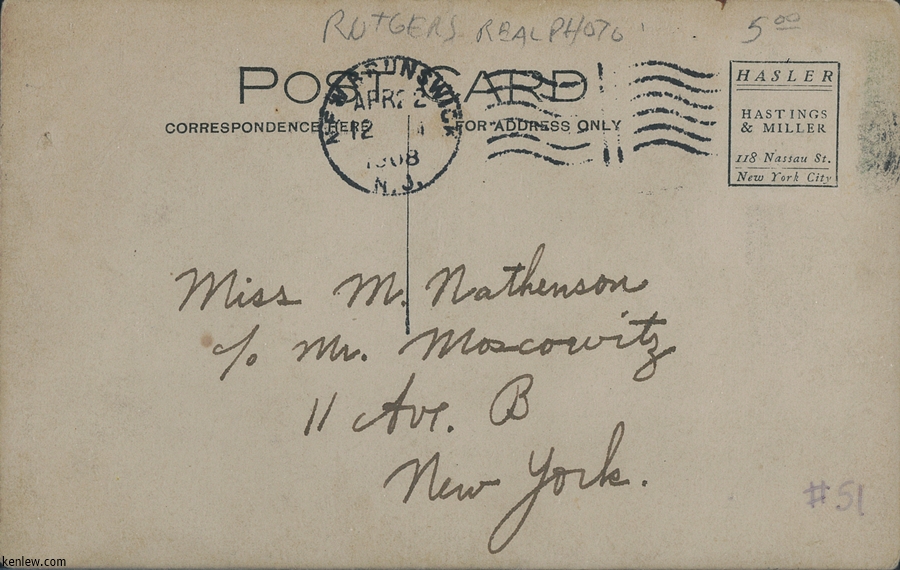 RUTGERS REAL PHOTO
5 00
POST CARD
CORRESPONDENCE HERE
FOR ADDRESS ONLY
NEW BRUNSWICK
APR 2
12
1908
N.J.
HASLER
HASTINGS
& MILLER
118 Nassau St.
New York City
Miss M. Nathenson
c/o Mr. Moscowitz
11 Ave. B
New York.
#51
kenlew.com